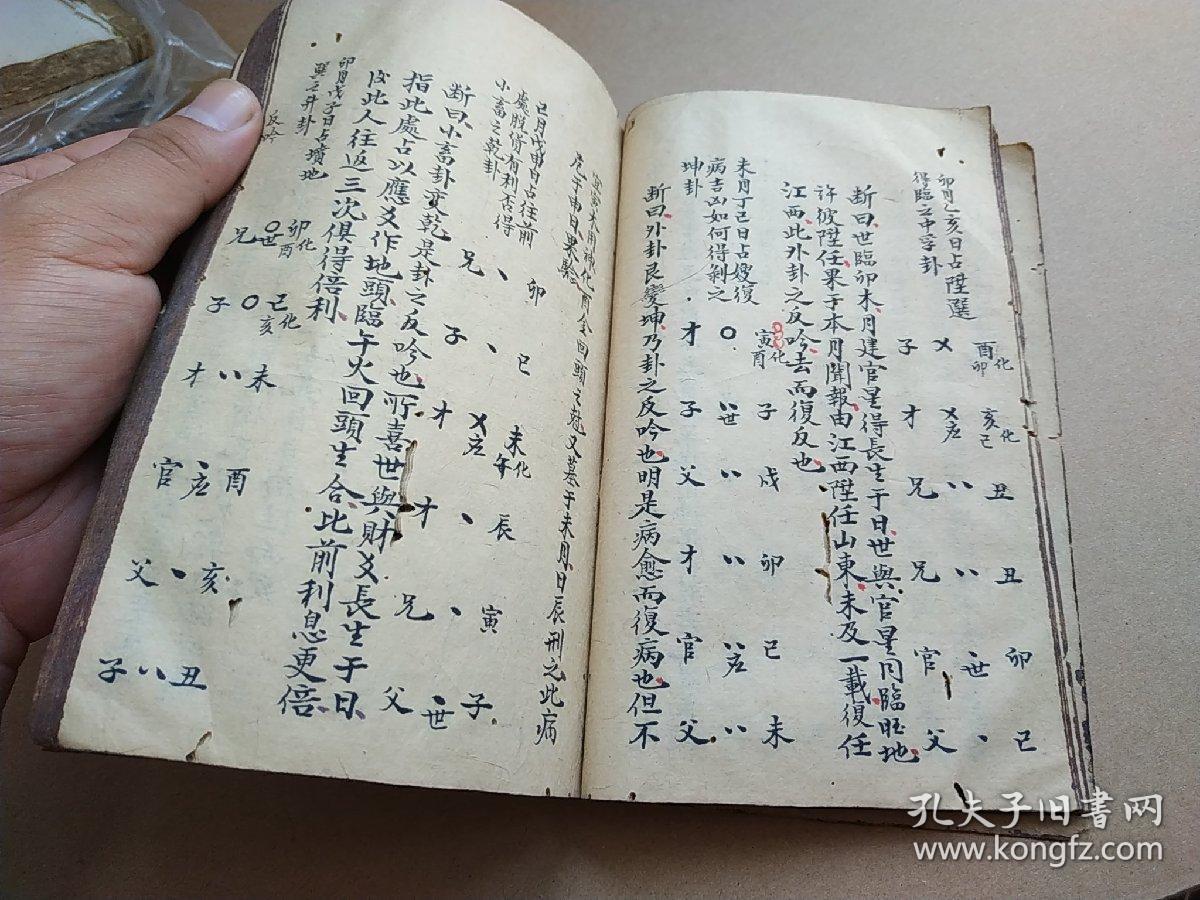 卯月乙亥日占陞選
得臨之中孚卦
子 㐅 酉化卯
才 㐅应 亥化巳
兄 〃 丑
兄 〃 丑
官 丶世 卯
父 丶 巳
断曰世臨卯木月建官星得長生于日世與官星同臨旺地
許彼陞任果于本月聞報由江西陞任山東未及一載復任
江西此外卦之反吟去而復反也
未月丁巳日占嫂復
病吉凶如何得剝之
坤卦
才 〇 寅化酉
子 〃世 子
父 〃 戌
才 〃 卯
官 〃应 巳
父 〃 未
断曰外卦艮變坤乃卦之反吟也明是病愈而復病也但不
木用神化酉金回頭之尅又墓于未月日辰刑之此病
危于申日果驗
巳月戊申日占往前
處脱貨有利否得
小畜之乾卦
兄 丶 卯
子 丶 巳
才 㐅应 未化午
才 丶 辰
兄 丶 寅
父 丶世 子
断曰小畜卦変乾是卦之反吟也所喜世與財爻長生于日
指此處占以應爻作地頭臨午火回頭生合比前利息更倍
後此人往返三次俱得倍利
卯月戊子日占墳地
巽之井卦
反吟
兄 〇世 卯化酉
子 〇 巳化亥
才 〃 未
官 丶应 酉
父 丶 亥
子 〃 丑
孔夫子旧書网
www.kongfz.com